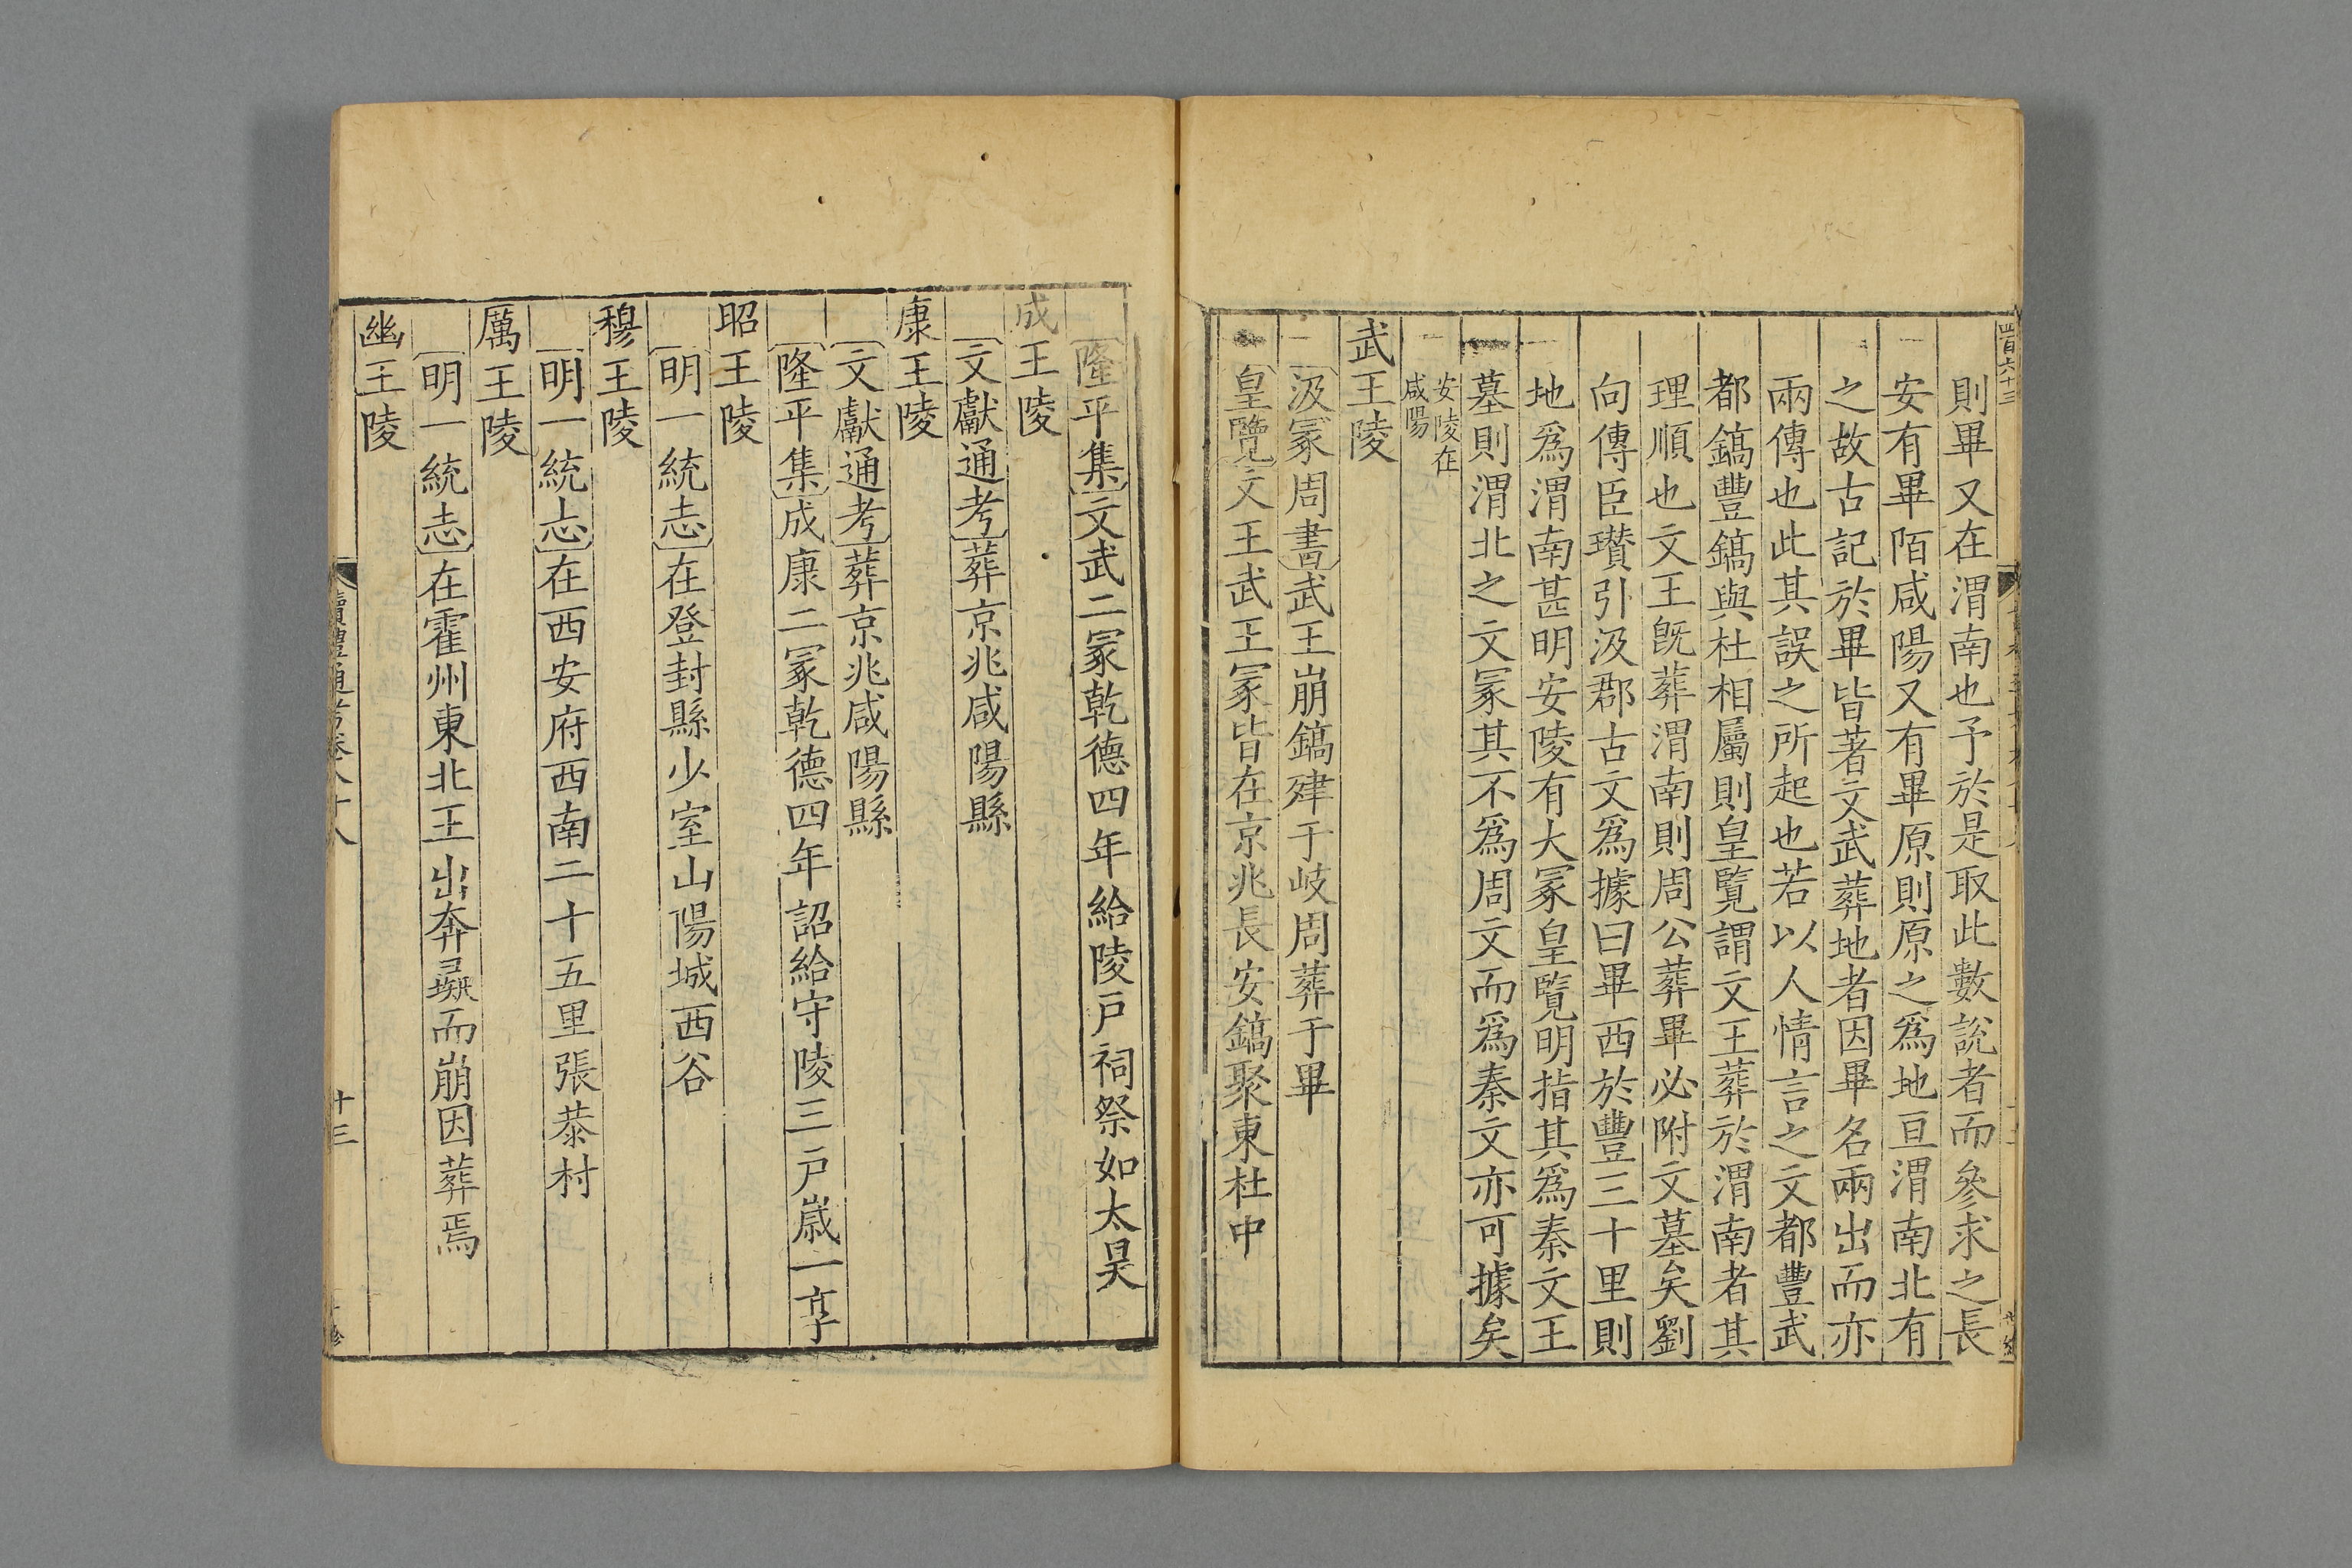 則畢又在渭南也予於是取此數說者而參求之長
安有畢陌咸陽又有畢原則原之爲地亘渭南北有
之故古記於畢皆著文武葬地者因畢名兩出而亦
兩傳也此其誤之所起也若以人情言之文都豐武
都鎬豐鎬與杜相屬則皇覽謂文王葬於渭南者其
理順也文王旣葬渭南則周公葬畢必附文墓矣劉
向傳臣瓚引汲郡古文爲據曰畢西於豐三十里則
地爲渭南甚明安陵有大冢皇覽明指其爲秦文王
墓則渭北之文冢其不爲周文而爲秦文亦可據矣
安陵在
咸陽
武王陵
〔汲冢周書〕武王崩鎬肂于岐周葬于畢
〔皇覽〕文王武王冢皆在京兆長安鎬聚東杜中
〔隆平集〕文武二冢乾德四年給陵戸祠祭如太昊
成王陵
〔文獻通考〕葬京兆咸陽縣
康王陵
〔文獻通考〕葬京兆咸陽縣
〔隆平集〕成康二冢乾德四年詔給守陵三戸歲一享
昭王陵
〔明一統志〕在登封縣少室山陽城西谷
穆王陵
〔明一統志〕在西安府西南二十五里張恭村
厲王陵
〔明一統志〕在霍州東北王出奔彘而崩因葬焉
幽王陵
讀禮通考卷八十八
十三